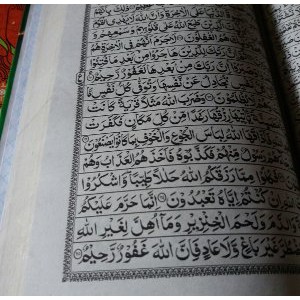 عَلَى الْاٰخِرَةِ وَاَنَّ اللّٰهَ لَا يَهْدِى
طَبَعَ اللّٰهُ عَلٰى قُلُوْبِهِمْ وَسَمْعِهِمْ وَ
الْغٰفِلُوْنَ لَا جَرَمَ اَنَّهُمْ فِى الْاٰخِرَةِ هُمُ
اِنَّ رَبَّكَ لِلَّذِيْنَ هَاجَرُوْا مِنْۢ بَعْدِ مَا
اِنَّ رَبَّكَ مِنْۢ بَعْدِهَا لَغَفُوْرٌ رَّحِيْمٌ
نَفْسٍ تُجَادِلُ عَنْ نَّفْسِهَا وَتُوَفّٰى كُلُّ نَفْسٍ مَّا
يُظْلَمُوْنَ وَضَرَبَ اللّٰهُ مَثَلًا قَرْيَةً كَانَتْ
يَّاْتِيْهَا رِزْقُهَا رَغَدًا مِّنْ كُلِّ مَكَانٍ فَكَفَرَتْ
اللّٰهُ لِبَاسَ الْجُوْعِ وَالْخَوْفِ بِمَا كَانُوْا يَصْنَعُوْنَ
رَسُوْلٌ مِّنْهُمْ فَكَذَّبُوْهُ فَاَخَذَهُمُ الْعَذَابُ وَهُمْ
رَزَقَكُمُ اللّٰهُ حَلٰلًا طَيِّبًا وَّاشْكُرُوْا
كُنْتُمْ اِيَّاهُ تَعْبُدُوْنَ اِنَّمَا حَرَّمَ عَلَيْكُمُ
وَالدَّمَ وَلَحْمَ الْخِنْزِيْرِ وَمَآ اُهِلَّ لِغَيْرِ اللّٰهِ
غَيْرَ بَاغٍ وَّلَا عَادٍ فَاِنَّ اللّٰهَ غَفُوْرٌ رَّحِيْمٌ